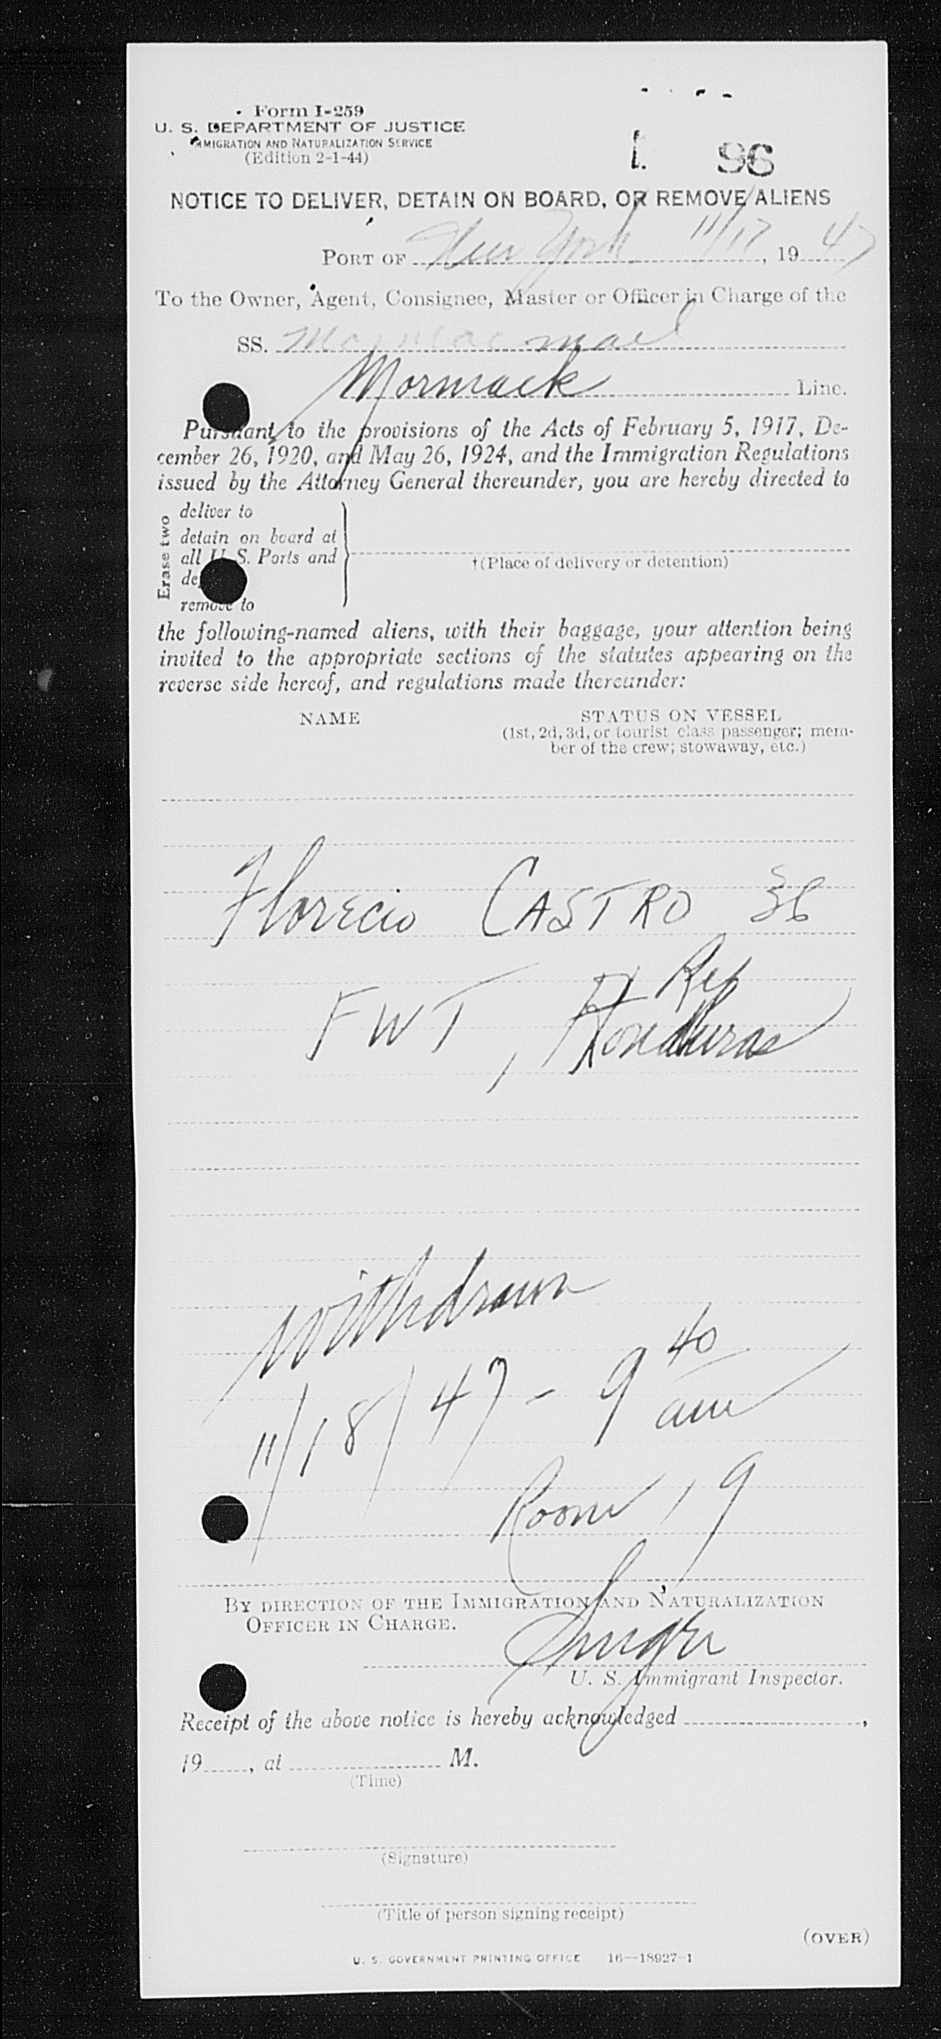 Form I-259
U. S. DEPARTMENT OF JUSTICE
IMMIGRATION AND NATURALIZATION SERVICE
(Edition 2-1-44)
96
NOTICE TO DELIVER, DETAIN ON BOARD, OR REMOVE ALIENS
PORT OF New York 11/17, 1947
To the Owner, Agent, Consignee, Master or Officer in Charge of the
SS. Mormacmail
Mormack Line.
Pursuant to the provisions of the Acts of February 5, 1917, De-
cember 26, 1920, and May 26, 1924, and the Immigration Regulations
issued by the Attorney General thereunder, you are hereby directed to
Erase two
deliver to
detain on board at
all U. S. Ports and
remove to
†(Place of delivery or detention)
the following-named aliens, with their baggage, your attention being
invited to the appropriate sections of the statutes appearing on the
reverse side hereof, and regulations made thereunder:
NAME STATUS ON VESSEL
(1st, 2d, 3d, or tourist class passenger; mem-
ber of the crew; stowaway, etc.)
Florecio CASTRO 36
FWT, Rep
Honduras
Withdrawn
11/18/47 - 9 40 am
Room 19
BY DIRECTION OF THE IMMIGRATION AND NATURALIZATION
OFFICER IN CHARGE.
U. S. Immigrant Inspector.
Receipt of the above notice is hereby acknowledged ,
19 , at M.
(Time)
(Signature)
(Title of person signing receipt)
(OVER)
U. S. GOVERNMENT PRINTING OFFICE 16—18927-1